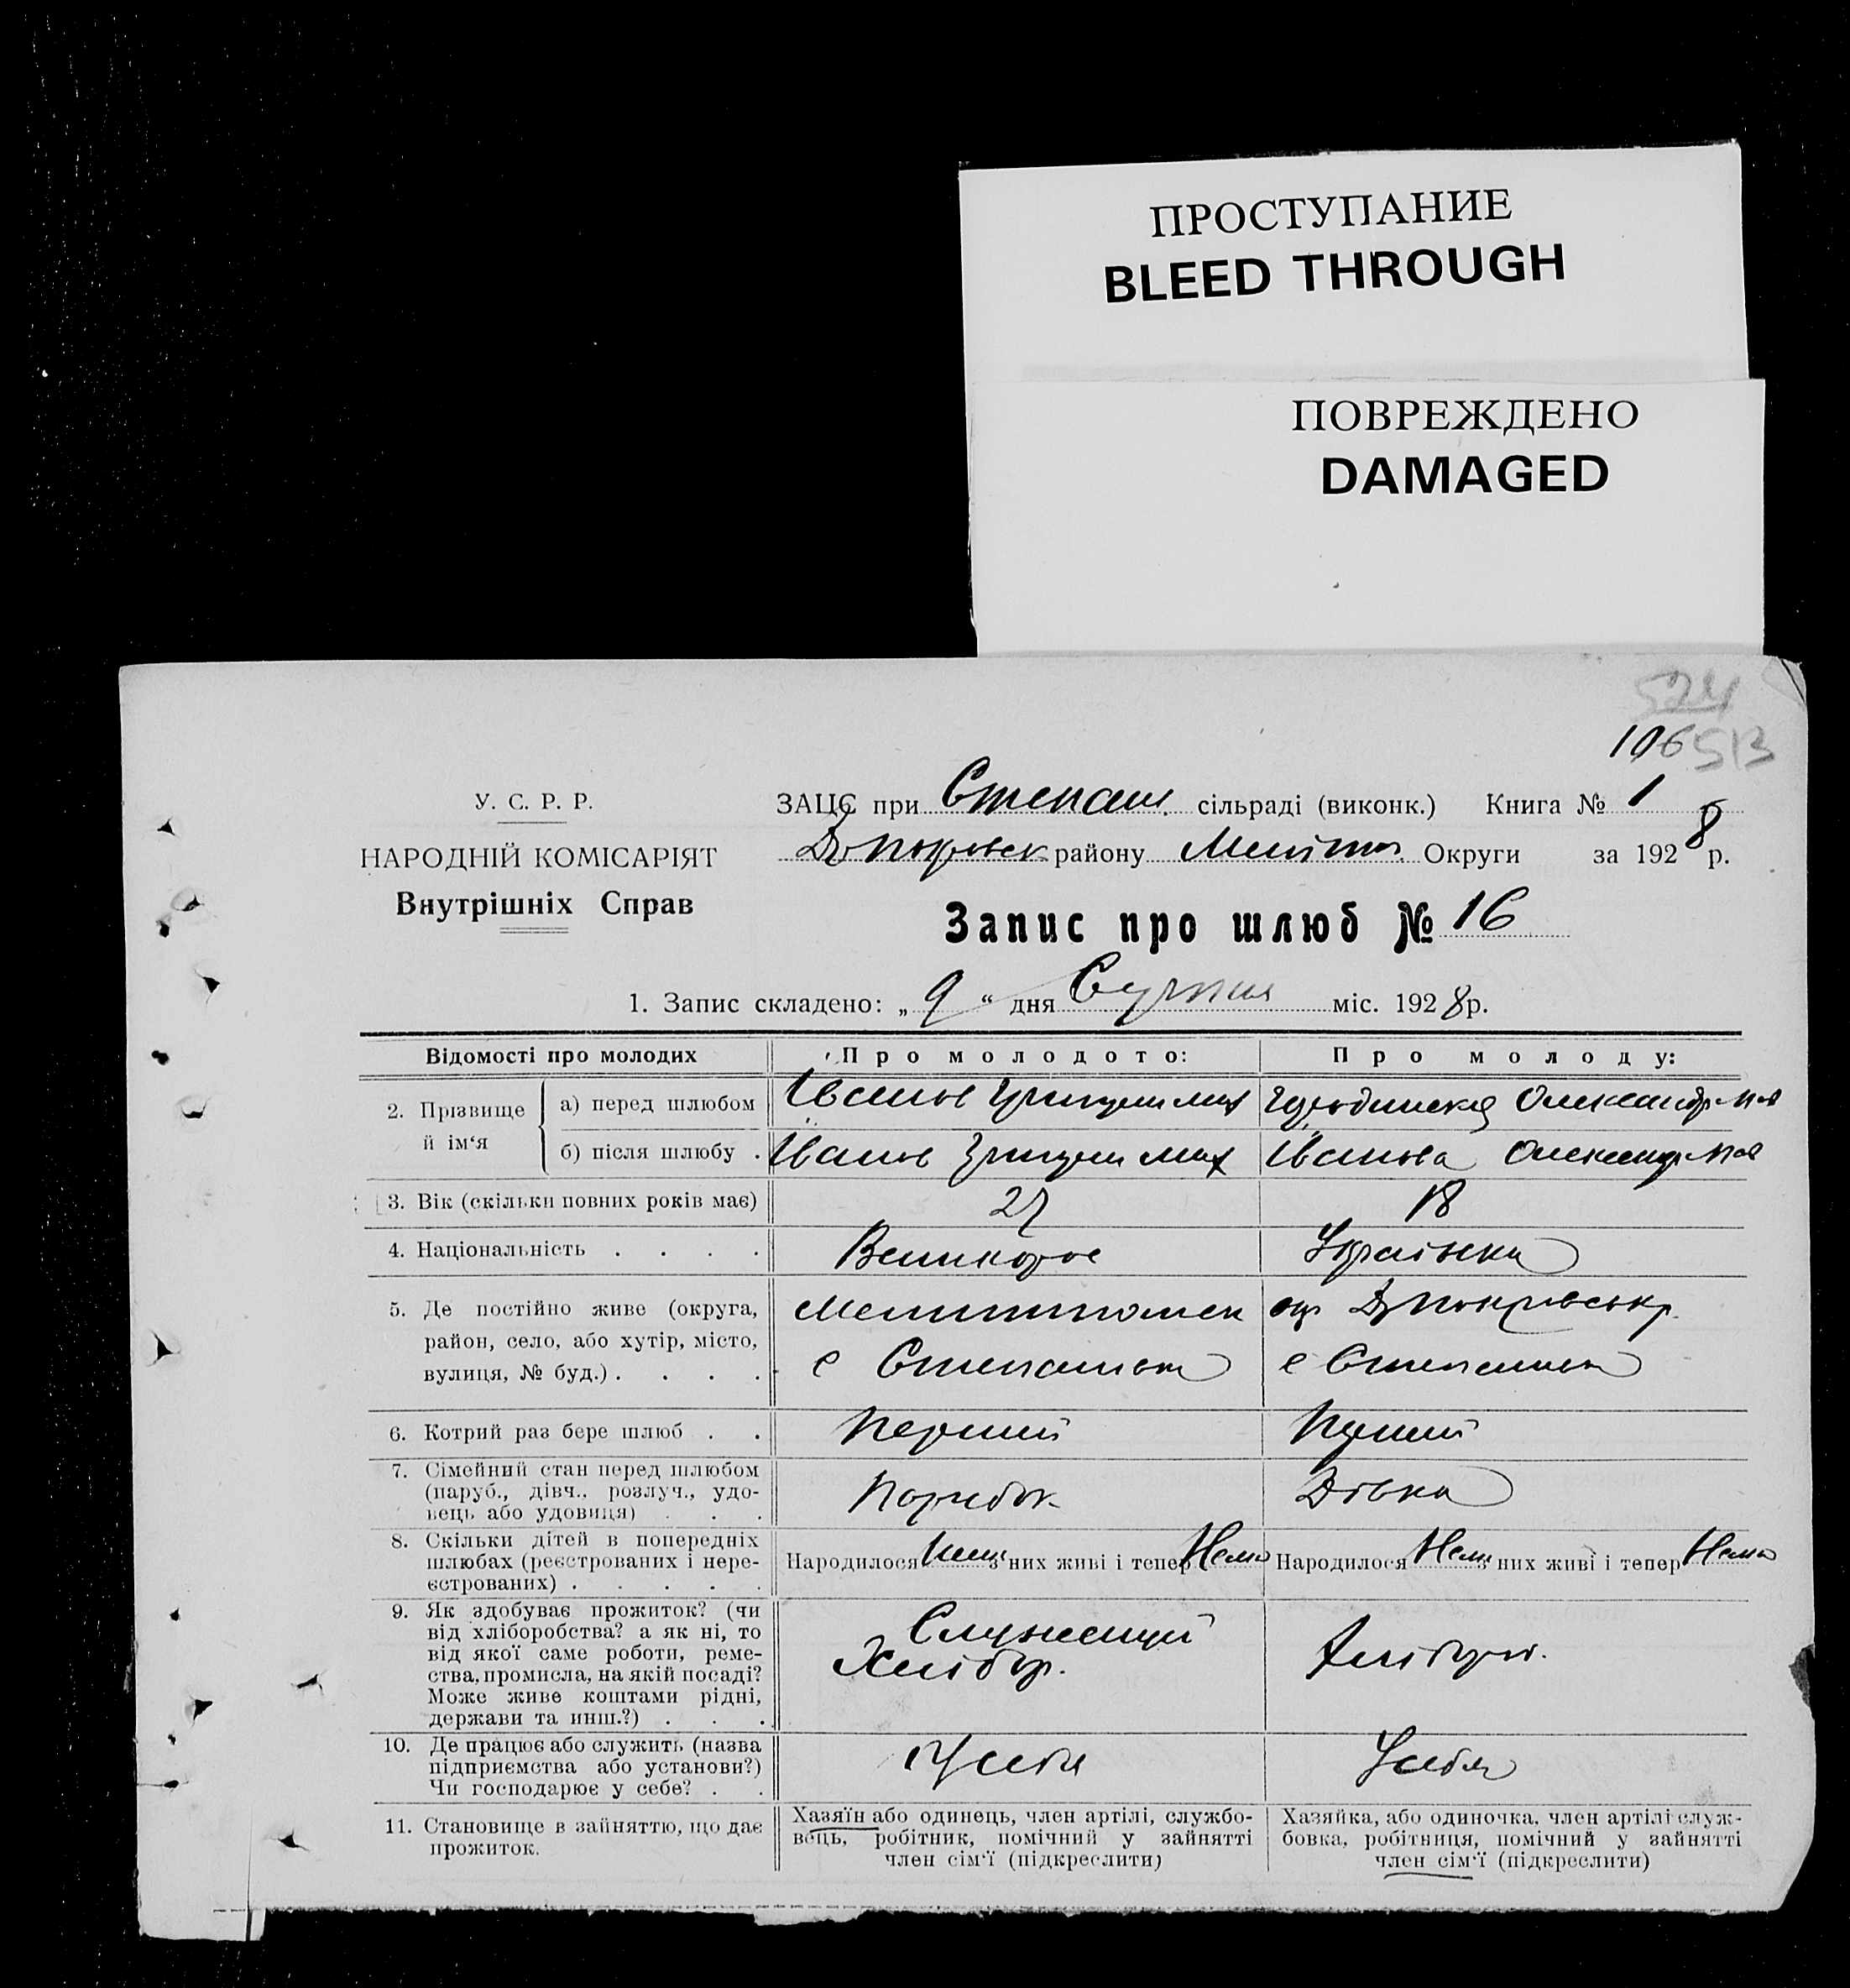 ПРОСТУПАНИЕ
BLEED THROUGH
ПОВРЕЖДЕНО
DAMAGED
524
106 513
У. С. Р. Р.
ЗАЦС при Степан. сільраді (виконк.) Книга № 1
НАРОДНІЙ КОМІСАРІЯТ
Дпокровск району Меліт. Округи за 1928 р.
Внутрішніх Справ
Запис про шлюб № 16
1. Запис складено: „ 9 “ дня Сичня міс. 1928 р.
Відомості про молодих
Про молодого:
Про молоду:
2. Прізвище й ім‘я
а) перед шлюбом
Іванов
б) після шлюбу .
Іванов
Іванова
3. Вік (скільки повних років має)
27
18
4. Національність . . . .
Великорос
Українка
5. Де постійно живе (округа,
район, село, або хутір, місто,
вулиця, № буд.) . . . .
Мелитополск окр Дпокровськ р.
с Степанівка
с Степанівка
6. Котрий раз бере шлюб . .
Перший
Перший
7. Сімейний стан перед шлюбом
(паруб., дівч., розлуч., удо-
вець або удовиця) . . .
Парубок
Дівка
8. Скільки дітей в попередніх
шлюбах (реєстрованих і нере-
єстрованих) . . . . .
Народилося Нема з них живі і тепер Нема
Народилося Нема з них живі і тепер Нема
9. Як здобуває прожиток? (чи
від хліборобства? а як ні, то
від якої саме роботи, реме-
ства, промисла, на якій посаді?
Може живе коштами рідні,
держави та инш.?) . . .
Служащий
Хлібор.
Хлібороб.
10. Де працює або служить (назва
підприємства або установи?)
Чи господарює у себе? . .
У себя
У себя
11. Становище в зайняттю, що дає
прожиток.
Хазяїн або одинець, член артілі, службо-
вець, робітник, помічний у зайнятті
член сім‘ї (підкреслити)
Хазяйка, або одиночка, член артілі служ-
бовка, робітниця, помічний у зайнятті
член сім‘ї (підкреслити)